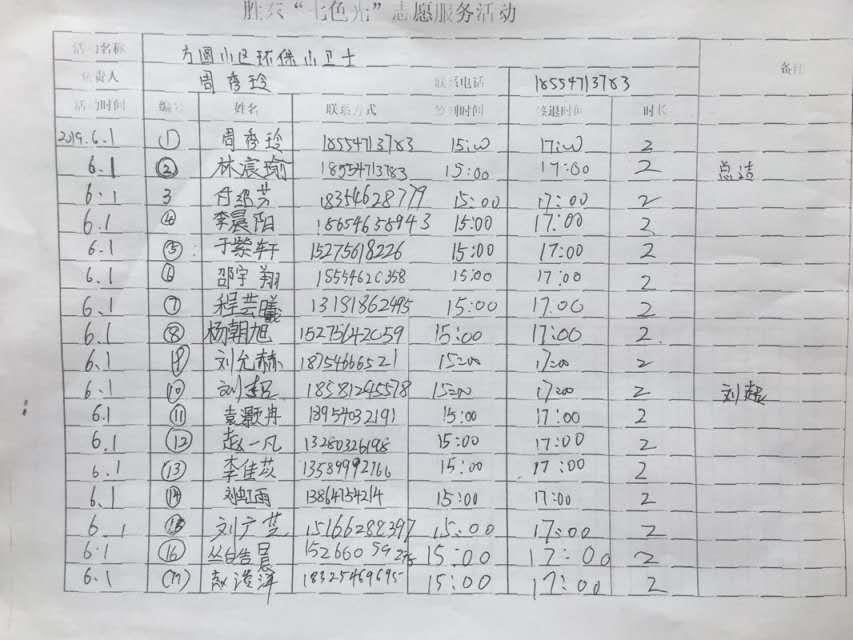 胜兴“七色光”志愿服务活动
活动名称 方圆小区环保小卫士 备注
负责人 周秀玲 联系电话 18554713783
活动时间 编号 姓名 联系方式 签到时间 签退时间 时长
2019.6.1 ① 周秀玲 18554713783 15:00 17:00 2
6.1 ② 林宸瑜 18554713783 15:00 17:00 2 总结
6.1 3 18354628779 15:00 17:00 2
6.1 ④ 李晨阳 18654658943 15:00 17:00 2
6.1 ⑤ 于紫轩 15275618226 15:00 17:00 2
6.1 ⑥ 邵宇翔 1555462C358 15:00 17:00 2
6.1 ⑦ 程芸曦 13181862495 15:00 17:00 2
6.1 ⑧ 杨朝旭 15275642059 15:00 17:00 2
6.1 ⑨ 刘允赫 18754666521 15:00 17:00 2
6.1 ⑩ 刘超 18581245578 15:00 17:00 2 刘超
6.1 ⑪ 袁灏冉 13954032191 15:00 17:00 2
6.1 ⑫ 赵一凡 13280326198 15:00 17:00 2
6.1 ⑬ 李佳苡 13589992766 15:00 17:00 2
6.1 ⑭ 刘虹雨 13864754214 15:00 17:00 2
6.1 ⑮ 刘广芝 15166288397 15:00 17:00 2
6.1 ⑯ 丛皓晨 15266059275 15:00 17:00 2
6.1 ⑰ 赵滢洋 18325469695 15:00 17:00 2